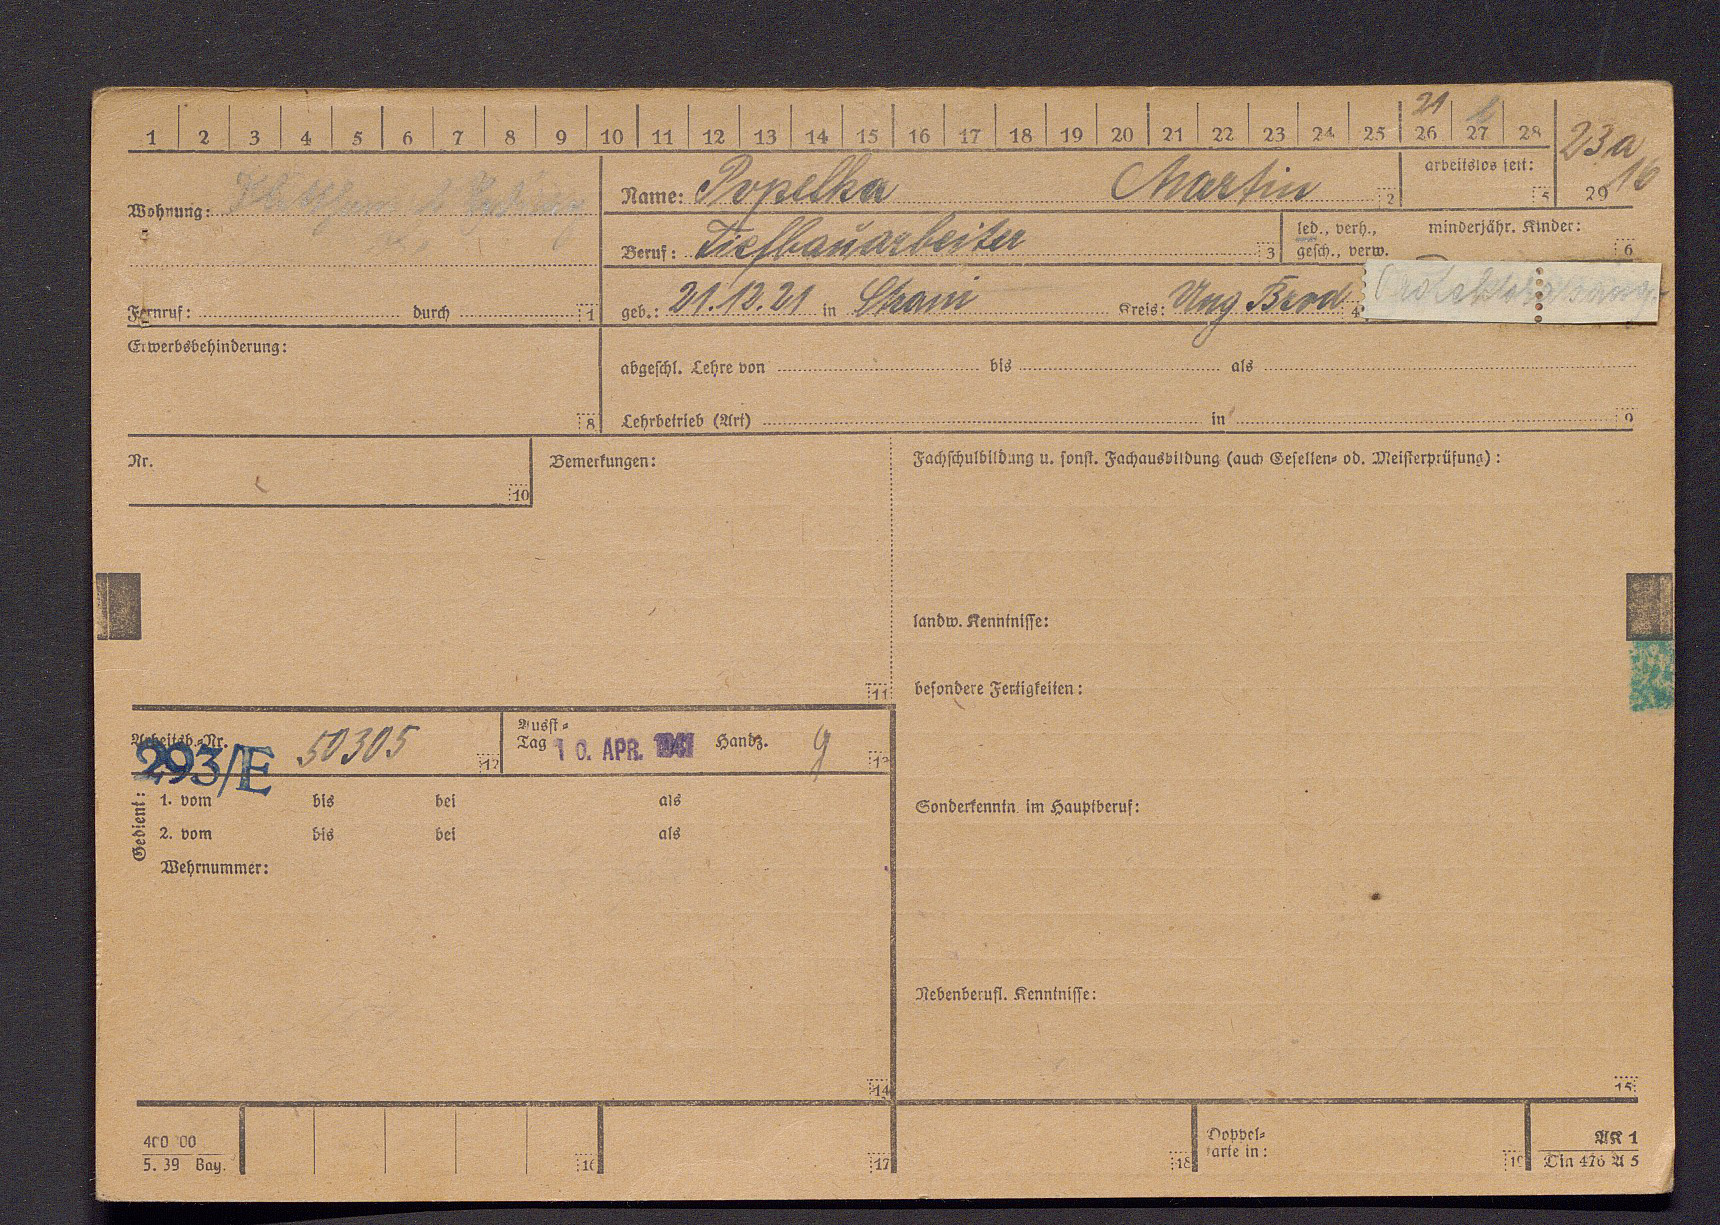 21
1 2 3 4 5 6 7 8 9 10 11 12 13 14 15 16 17 18 19 20 21 22 23 24 25 26 27 28 23a
16
Wohnung:
Name: Popelka Martin 2
arbeitslos seit: 5 29
Beruf: Tiefbauarbeiter 3
led., verh., gesch., verw.
minderjähr. Kinder: 6
Fernruf: durch 1
geb.: 21.12.21 in Kreis: Ung Brod 4
Erwerbsbehinderung: 8
abgeschl. Lehre von bis als
Lehrbetrieb (Art) in 9
Nr. 10
Bemerkungen: 11
Fachschulbildung u. sonst. Fachausbildung (auch Gesellen- od. Meisterprüfung):
landw. Kenntnisse:
besondere Fertigkeiten:
Arbeitsb.-Nr. 50305 12
293/E
Ausst-
Tag 10. APR. 1941 Handz. 13
Gedient:
1. vom bis bei als
2. vom bis bei als
Wehrnummer:
14
Sonderkenntn. im Hauptberuf:
Nebenberufl. Kenntnisse:
15
400 00
5. 39 Bay.
16 17 18
Doppel-
karte in: 19
AK 1
Din 476 A 5